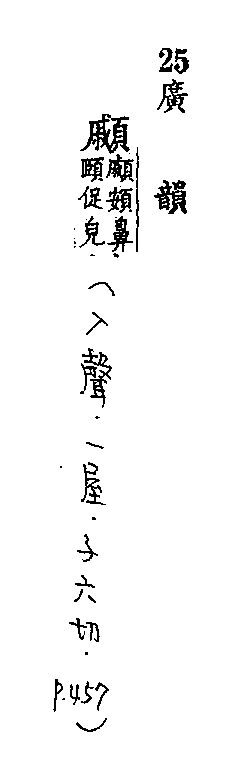 25廣韻
顣顣頞鼻
頤促皃．(入聲．一屋．子六切．p.457)